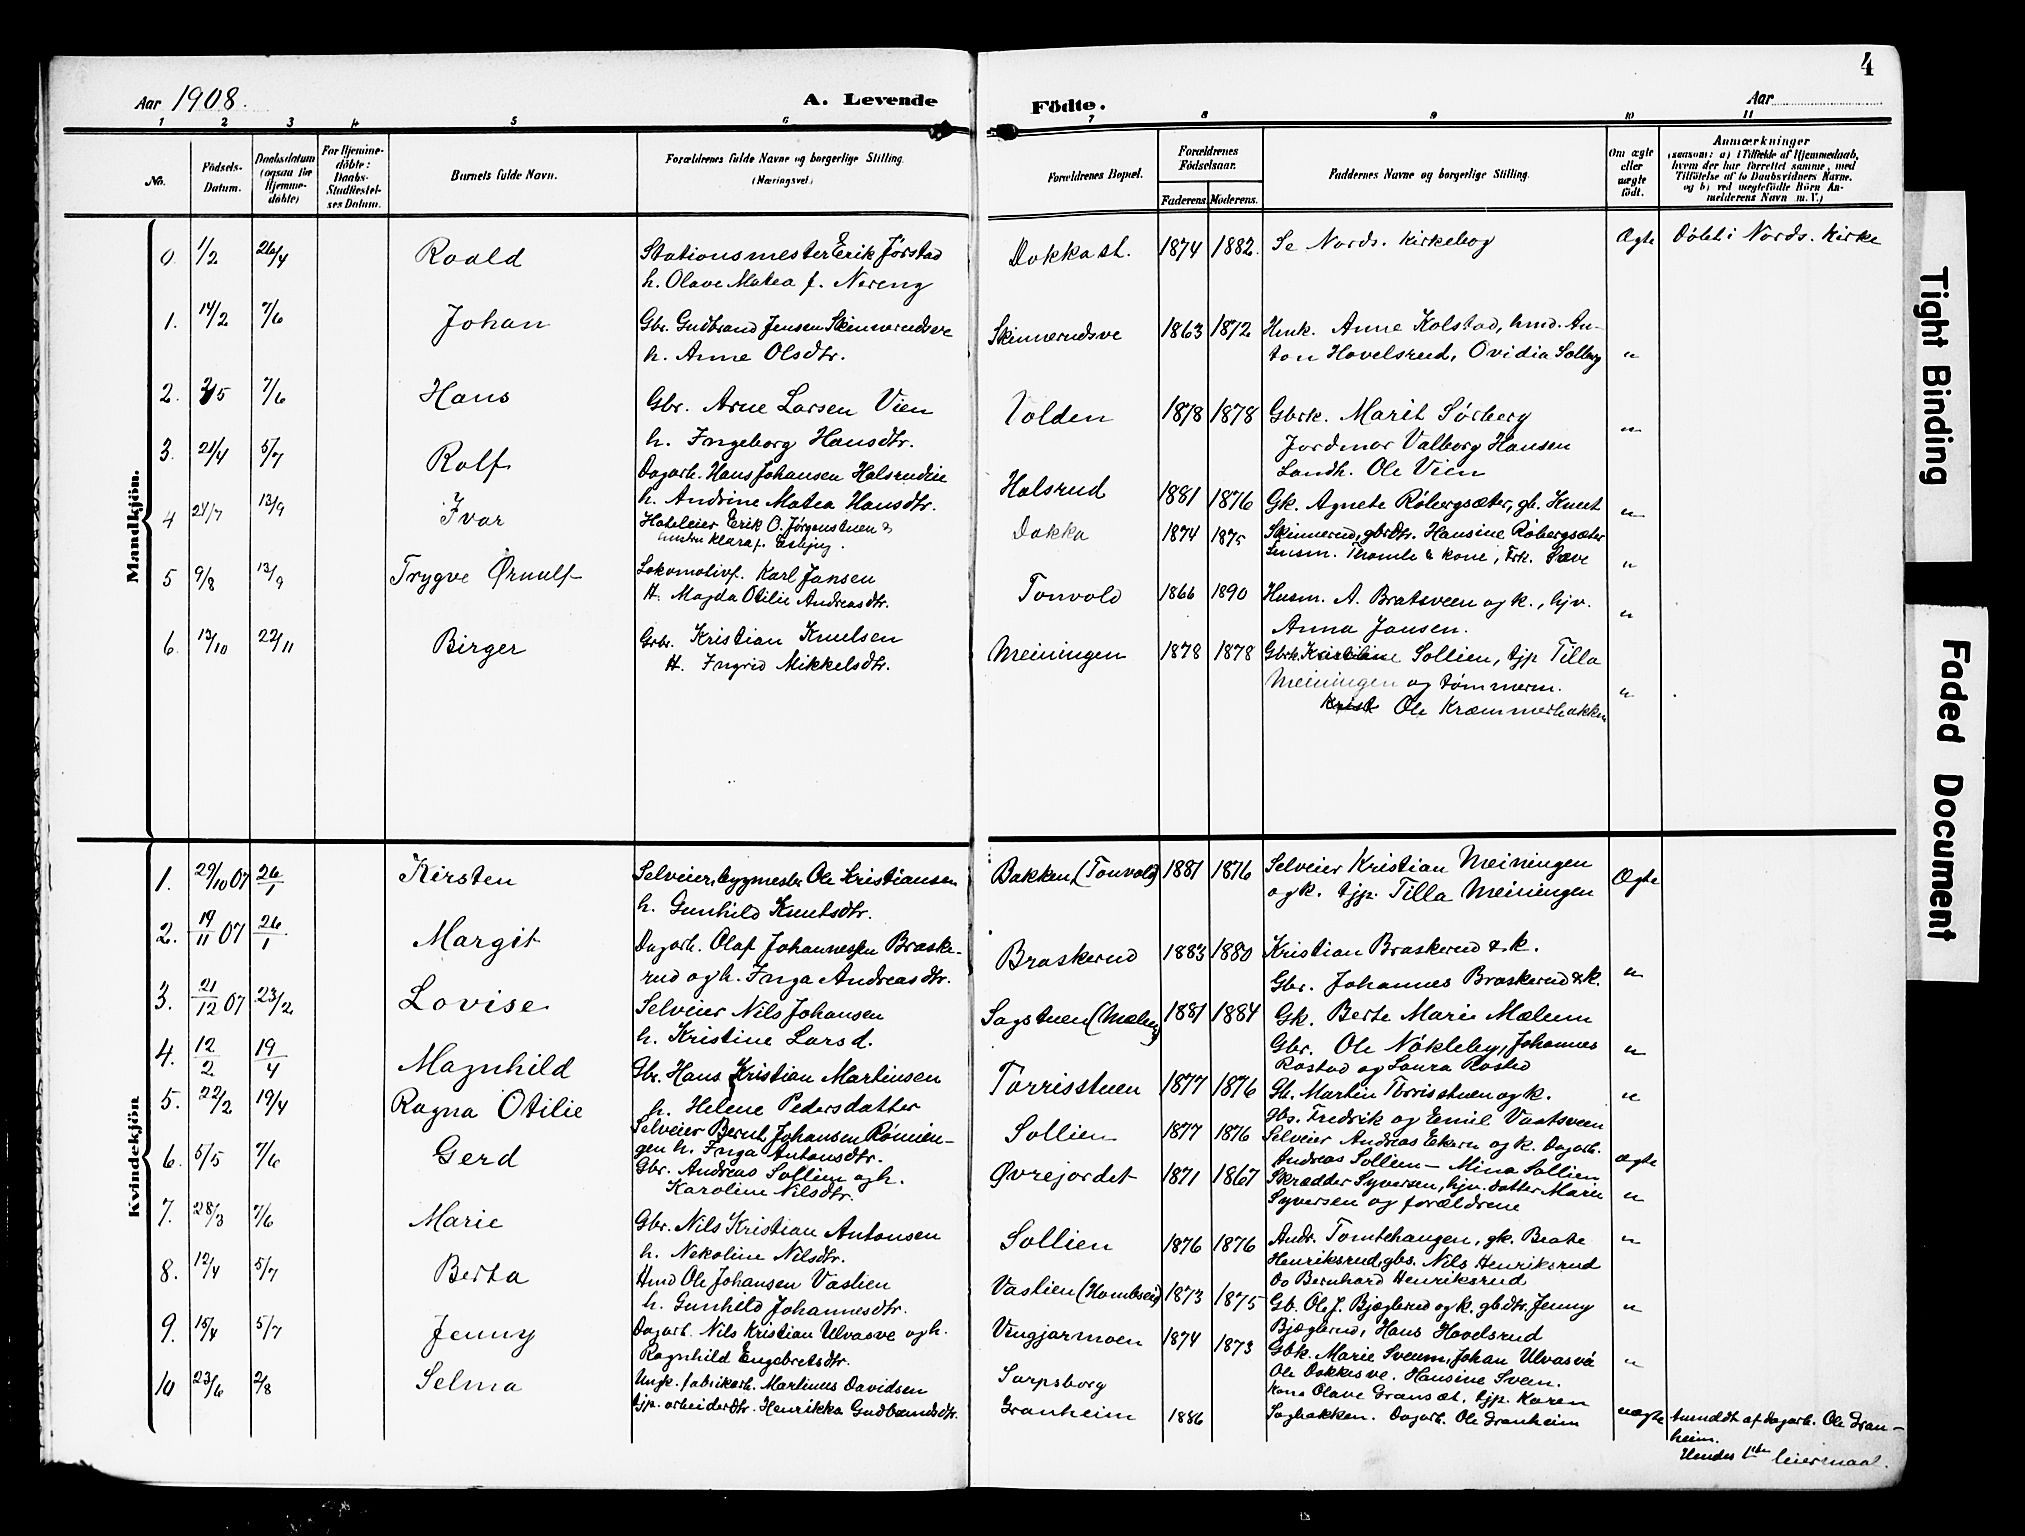 4
Aar 1908.
A. Levende
Födte.
Aar
1 2 3 4 5 6 7 8 9 10 11
No.
Födsels-Datum.
Daabsdatum (ogsaa for Hjemme-döbte)
For Hjemme-döbte: Daabs-Stadfæstel-ses Datum.
Barnets fulde Navn.
Forældrenes fulde Navne og borgerlige Stilling. (Næringsvei)
Forældrenes Bopæl.
Forældrenes Födselsaar.
Faderens. Moderens.
Faddernes Navne og borgerlige Stilling.
Om ægte eller uægte födt.
Anmærkninger
(saasom: a) i Tilfælde af Hjemmedaab,
hvem der har forrettet samme, med
Tilföielse af to Daabsvidners Navne.
og b) ved uægtefödte Börn An-
melderens Navn m. V.)
Mandkjön.
0 1/2 26/4 Roald Stationsmester Erik Jørstad Dokka st. 1874 1882. Se Nords. kirkebog Ægte Döbt i Nords. Kirke
h. Olave Matea f. Nereng
1. 14/2 7/6 Johan Gbr. Gudbrand Jensen Skinnerudsve Skinnerudsve 1863 1872 Hmk. Anne Kolstad, hmd. An-
h. Anne Olsdtr. ton Hovelsrud, Ovidia Solberg "
2. 2/5 7/6 Hans Gbr. Arne Larsen Vien Volden 1878 1878 Gbrk. Marit Sørberg "
h. Ingeborg Hansdtr. Jordmor Valborg Hansen
Landh. Ole Vien
3. 21/4 5/7 Rolf Dagarb. Hans Johansen Halsrudeie Halsrud 1881 1876 Gk. Agnete Röbergsæter, gb. Knut "
h. Andrine Matea Hansdtr.
4 24/7 13/9 Ivar Hoteleier Erik O. Jørgenstuen & Dokka 1874 1875 Skinnerud, gbrdtr. Hansine Röbergsæter
hustru Klara f. Esbjug. Lensm. Thomle & kone, Frk. Sæve "
5 9/8 13/9 Trygve Ørnulf Lokomotivf. Karl Jansen Tonvold 1866 1890 Husm. A. Bratsveen og k., hjv. "
H. Magda Otilie Andreasdtr. Anna Jansen.
6. 13/10 22/11 Birger Grbr. Kristian Knutsen Meiningen 1878 1878 Gbrk. Kristine Sollien, tjp Tilla
H. Ingrid Mikkelsdtr. Meiningen og tømmerm. "
Krist Ole Kræmmerbakken
Kvindekjön
1. 29/10 07 26/1 Kirsten Selveier, bygmester Ole Kristiansen Bakken (Tonvold) 1881 1876 Selveier Kristian Meiningen Ægte
h. Gunhild Knutsdtr. og k. tjp. Tilla Meiningen
2. 19/11 07 26/1 Margit Dagarb. Olaf Johannessen Braske- Braskerud 1883 1880 Kristian Braskerud & k. "
rud og h. Inga Andreasdtr. Gbr. Johannes Braskerud & k.
3. 21/12 07 23/2 Lovise Selveier Nils Johansen Sagstuen (Mælum) 1881 1884 Gk. Berte Marie Mælum
h. Kristine Larsd. Gbr. Ole Nökleby, Johannes "
Rostad og Laura Rosted
4. 12/2 19/4 Magnhild Gbr. Hans Kristian Martinsen Torrisstuen 1877 1876 Gb. Martin Torrisstuen og k. "
h. Helene Pedersdatter gbs. Fredrik og Emil Vaatsveen
5. 22/2 19/4 Ragna Otilie Selveier Bernt Johansen Römien- Sollien 1877 1876 Selveier Andreas Ekern og k. Dagarb.
gen h. Inga Antonsdtr. Andreas Sollien - Mina Sollien ægte
6. 5/5 7/6 Gerd Gbr. Andreas Sollien og h. Øvrejordet 1871 1867 Skrædder Syversen, hjv. datter Marie "
Karoline Nilsdtr. Syversen og forældrene
7. 28/3 7/6 Marie Gbr. Nils Kristian Antonsen Sollien 1876 1876 Andr. Tomtehaugen, gk. Beate "
h. Nekoline Nilsdtr. Henriksrud, gbs. Nils Henriksrud
Do Bernhard Henriksrud
8. 12/4 5/7 Berta Hmd Ole Johansen Vastien Vastien 1873 1875 Gb. Ole J. Bjæglerud og k. gbdtr. Jenny "
h. Gunhild Johannesdtr. Bjæglerud, Hans Hovelsrud
9. 15/4 5/7 Jenny Dagarb. Nils Kristian Ulvasve og h. Vingjarmoen 1874 1873 Gbk. Marie Sveum, Johan Ulvasvé "
Ragnhild Engebretsdtr. Ole Dokkesve. Hansine Sveen.
10 23/6 2/8 Selma Ungk. fabrikarb. Martinus Davidsen Sarpsborg Kone Olave Gransæt, tjp. Karen
tjp. arbeiderdtr. Henrikka Gudbrandsdtr. Granheim 1886 Sagbakken. Dagarb. Ole Granheim uægte Anmeldt af Dagarb. Ole Gran-
heim.
Hendes 1ste leiermaal.
Tight Binding
Faded Document